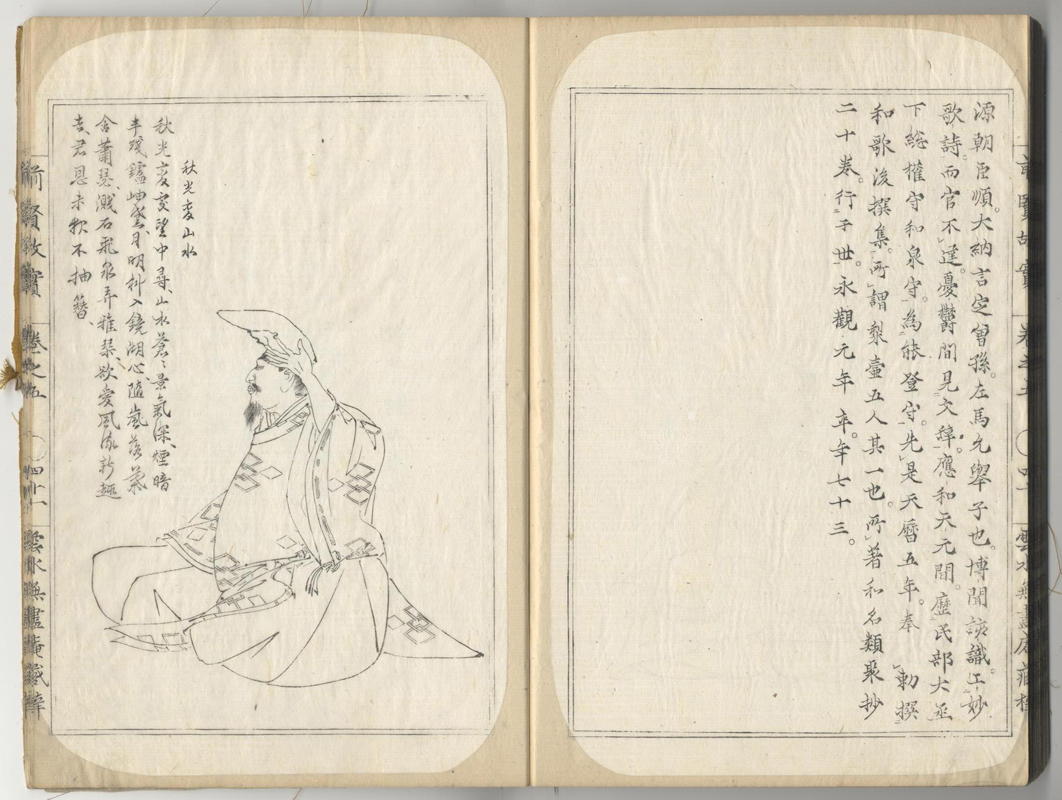 源朝臣順。大納言定曾孫。左馬允舉子也。博聞該識。工妙
歌詩。而官不達。憂鬱間見文辭。應和天元間。歷民部大丞
下總權守和泉守。為能登守。先是天曆五年。奉　勅撰
和歌後撰集。所謂梨壺五人其一也。所著和名類聚抄
二十卷。行于世。永觀元年卒。年七十三。
前賢故實　卷之五　雲水無盡庵藏梓
秋光變山水
秋光變變望中尋、山水蒼〻景氣深、煙暗
半殘鑪岫、月明斜入鏡湖心、隨嵐落葉
含蕭瑟、濺石飛泉弄雅琴、欲愛風流新趣
去、君恩未報不抽簪、
前賢故實　卷之五　雲水無盡庵藏梓